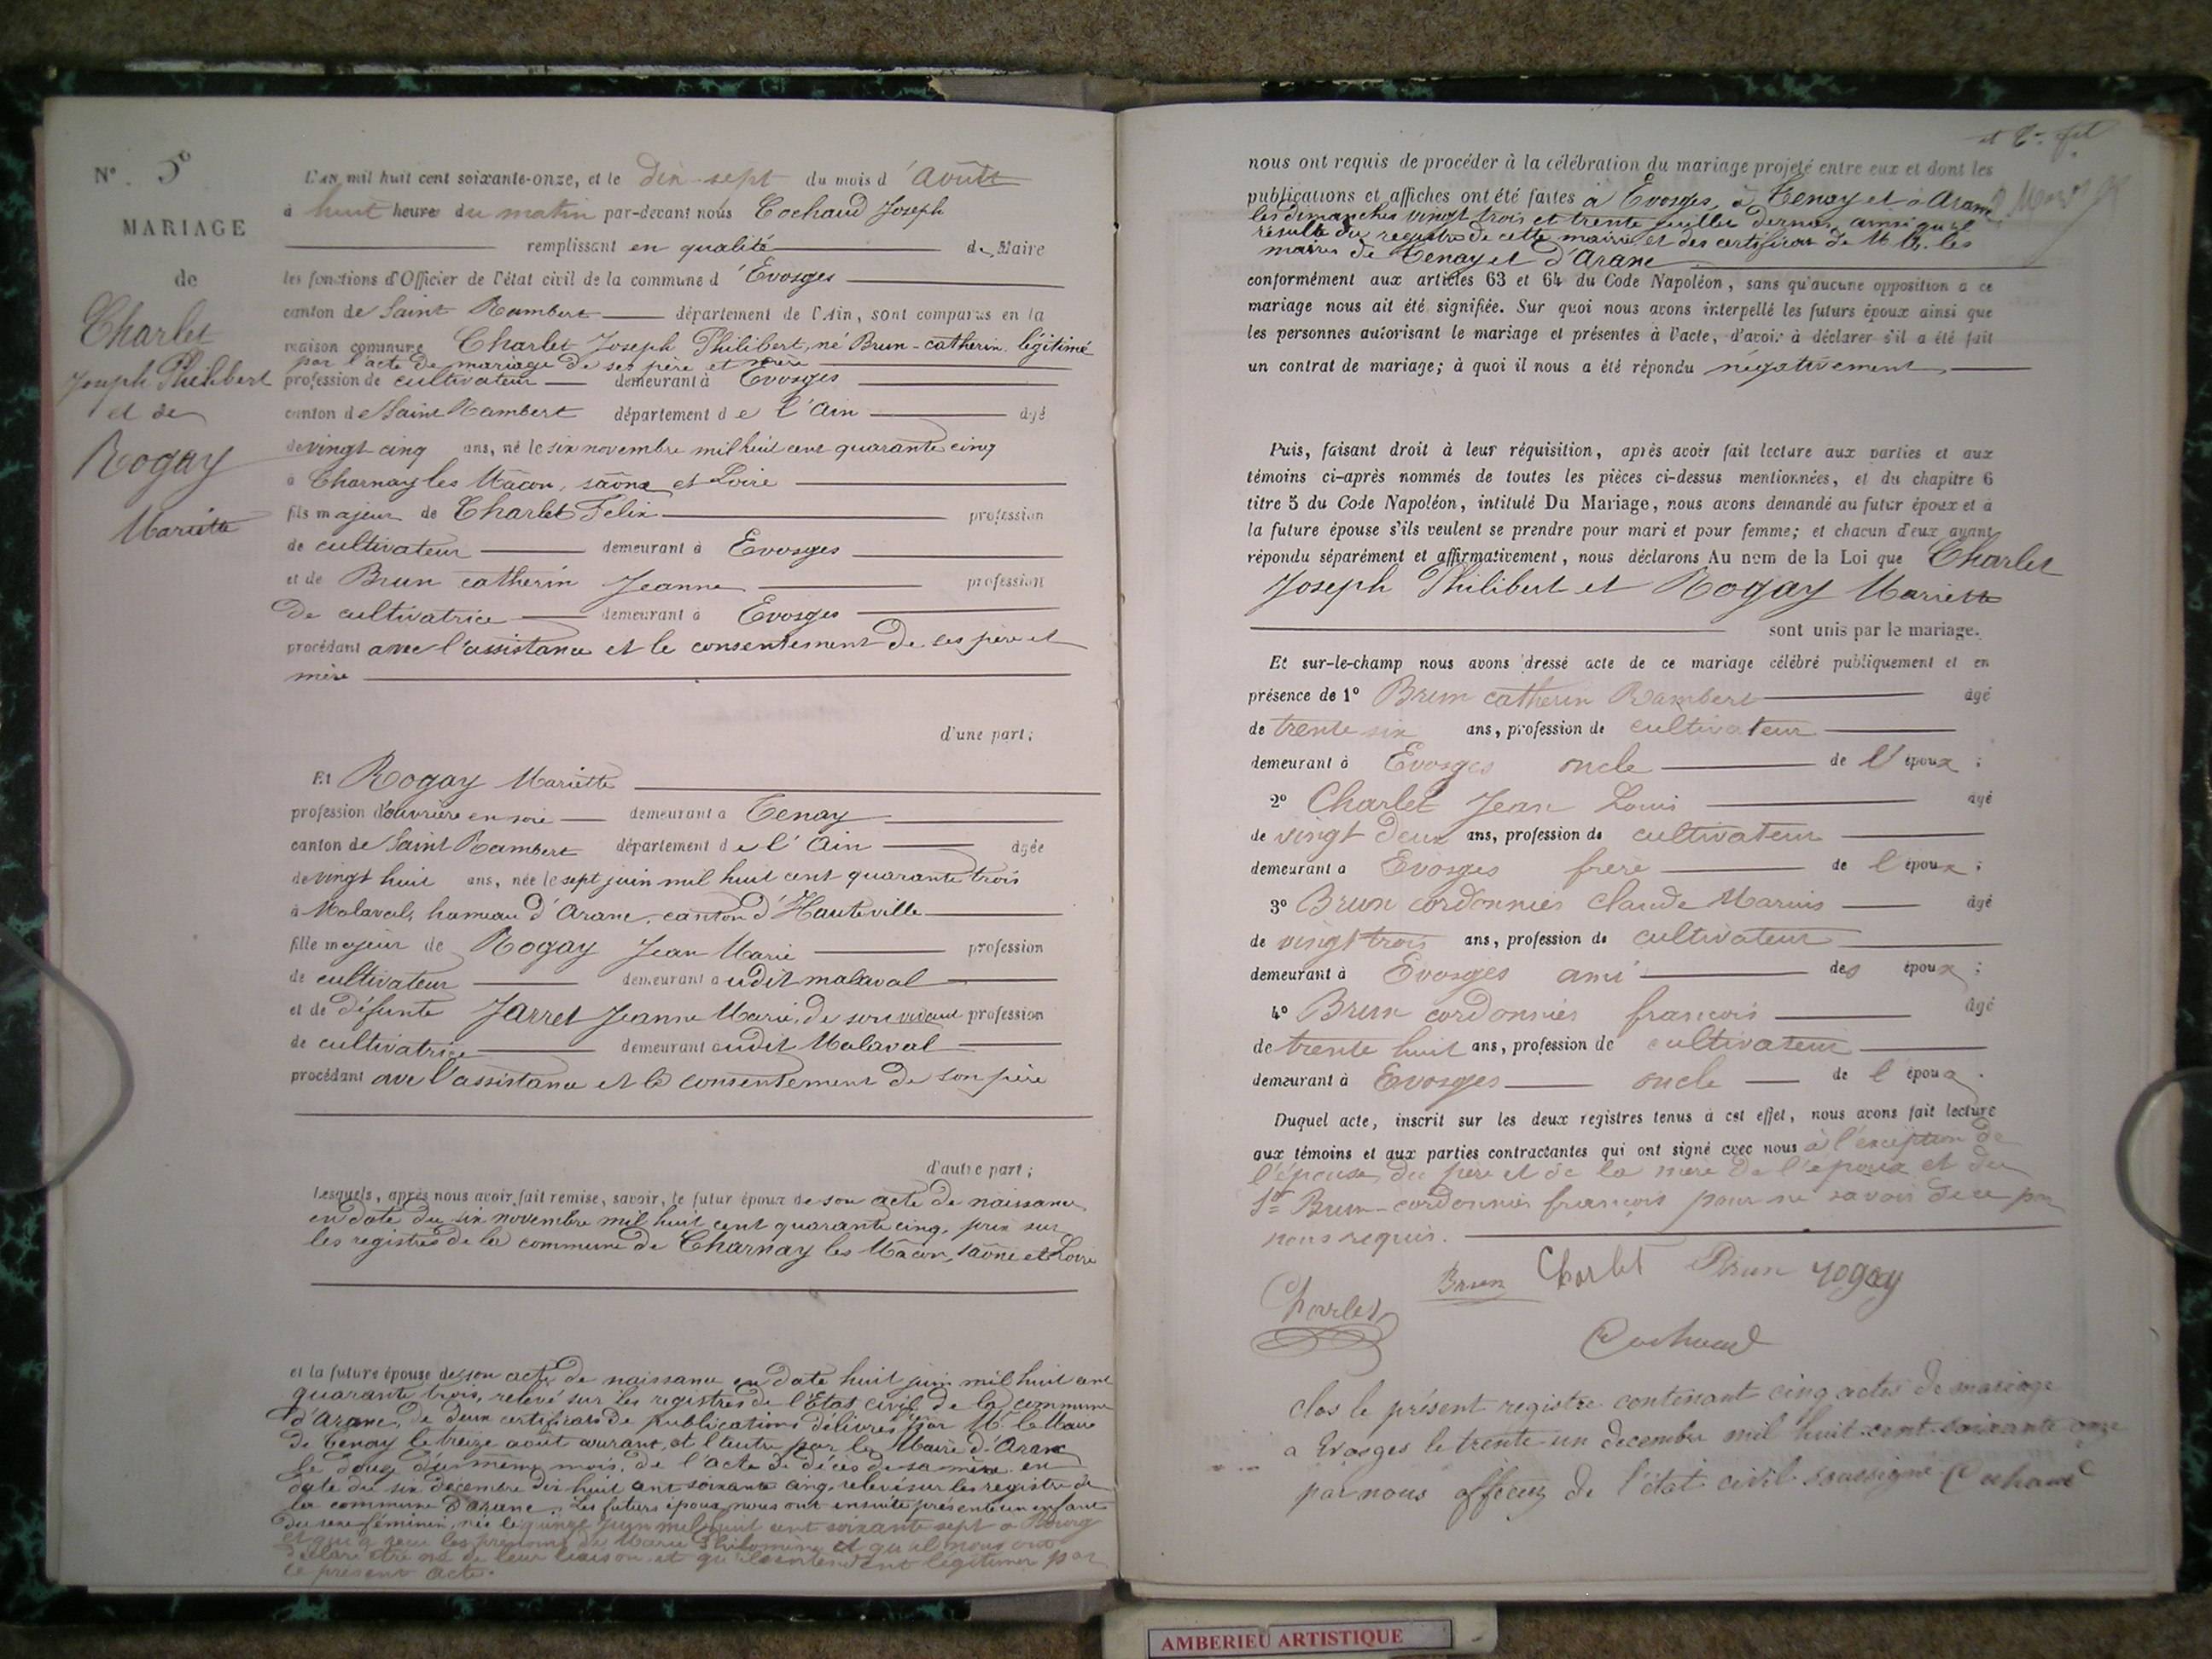 N° 5e
MARIAGE
de
Charlet
Joseph Philibert
et de
Rogay
Mariette
L'AN mil huit cent soixante-onze, et le dix sept du mois d'Août
à huit heures du matin par-devant nous Cochaud Joseph
remplissant en qualité de Maire
les fonctions d'Officier de l'état civil de la commune d'Evosges
canton de Saint Rambert département de l'Ain, sont comparus en la
maison commune Charlet Joseph Philibert, né Brun-catherin légitimé
par l'acte de mariage de ses père et mère
profession de cultivateur demeurant à Evosges
canton de Saint Rambert département de l'Ain âgé
de vingt cinq ans, né le six novembre mil huit cent quarante cinq
à Charnay les Mâcon, saône et Loire
fils majeur de Charlet Felix profession
de cultivateur demeurant à Evosges
et de Brun catherin Jeanne profession
de cultivatrice demeurant à Evosges
procédant avec l'assistance et le consentement de ses père et
mère
d'une part;
Et Rogay Mariette
profession d'ouvrière en soie demeurant à Tenay
canton de Saint Rambert département de l'Ain âgée
de vingt huit ans, née le sept juin mil huit cent quarante trois
à Malaval, hameau d'Arane, canton d'Hauteville
fille majeur de Rogay Jean Marie profession
de cultivateur demeurant audit malaval
et de défunte Jarret Jeanne Marie, de son vivant profession
de cultivatrice demeurant audit Malaval
procédant avec l'assistance et le consentement de son père
d'autre part;
Lesquels, après nous avoir fait remise, savoir, le futur époux de son acte de naissance
en date du six novembre mil huit cent quarante cinq, prix sur
les registres de la commune de Charnay les Mâcon, saône et Loire
et la future épouse de son acte de naissance en date huit juin mil huit cent
quarante trois, relevé sur les registres de l'Etat civil de la commune
d'Arane, de deux certificats de publications délivrés par M. le Maire
de Tenay le treize août courant, et l'autre par le Maire d'Arane
le douze du même mois, de l'acte de décès de sa mère en
date du six décembre dix huit cent soixante cinq, relevé sur les registres de
la commune d'Arane. Les futurs époux nous ont ensuite présenté un enfant
du sexe féminin, née le quinze juin mil huit cent soixante sept à Bourg
et qui a reçu les prénoms de Marie Philomène et qu'il nous ont
déclaré être né de leur liaison, et qu'ils entendent légitimer par
le présent acte.
nous ont requis de procéder à la célébration du mariage projeté entre eux et dont les
publications et affiches ont été faites à Evosges, à Tenay et à Arane
les dimanches vingt trois et trente juillet dernier, ainsi qu'il
résulte du registre de cette mairie et des certificats de M. les
maires de Tenay et d'Arane
conformément aux articles 63 et 64 du Code Napoléon, sans qu'aucune opposition à ce
mariage nous ait été signifiée. Sur quoi nous avons interpellé les futurs époux ainsi que
les personnes autorisant le mariage et présentes à l'acte, d'avoir à déclarer s'il a été fait
un contrat de mariage; à quoi il nous a été répondu négativement,
Puis, faisant droit à leur réquisition, après avoir fait lecture aux parties et aux
témoins ci-après nommés de toutes les pièces ci-dessus mentionnées, et du chapitre 6
titre 5 du Code Napoléon, intitulé Du Mariage, nous avons demandé au futur époux et à
la future épouse s'ils veulent se prendre pour mari et pour femme; et chacun d'eux ayant
répondu séparément et affirmativement, nous déclarons Au nom de la Loi que Charlet
Joseph Philibert et Rogay Mariette
sont unis par le mariage.
Et sur-le-champ nous avons dressé acte de ce mariage célébré publiquement et en
présence de 1° Brun catherin Rambert âgé
de trente six ans, profession de cultivateur
demeurant à Evosges oncle de l'époux;
2° Charlet Jean Louis âgé
de vingt deux ans, profession de cultivateur
demeurant à Evosges frère de l'époux;
3° Brun cordonnier Claude Marius âgé
de vingt trois ans, profession de cultivateur
demeurant à Evosges ami des époux;
4° Brun cordonnier françois âgé
de trente huit ans, profession de cultivateur
demeurant à Evosges oncle de l'époux.
Duquel acte, inscrit sur les deux registres tenus à cet effet, nous avons fait lecture
aux témoins et aux parties contractantes qui ont signé avec nous à l'exception de
l'épouse, du père et de la mère de l'époux et du
Sr Brun-cordonnier françois pour ne savoir de ce par
nous requis.
Charlet Brun Charlet Brun rogay
Cochaud
clos le présent registre contenant cinq actes de mariage
a Evosges le trente un decembre mil huit cent soixante onze
par nous officier de l'état civil soussigné Cochaud
AMBERIEU ARTISTIQUE